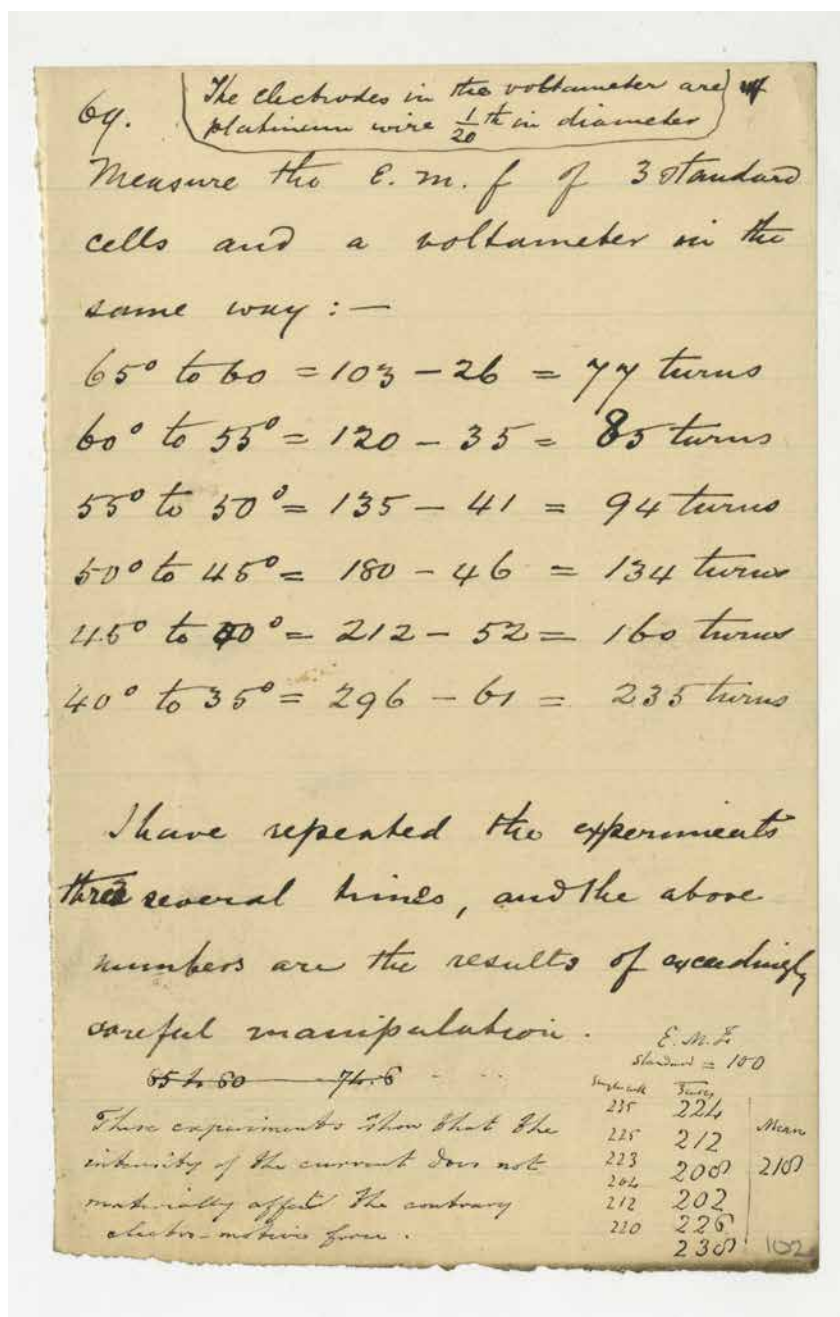 69.
The electrodes in the voltameter are
platinum wire 1/20 th in diameter
Measure the E. m. f of 3 standard
cells and a voltameter in the
same way : —
65° to 60 = 103 - 26 = 77 turns
60° to 55° = 120 - 35 = 85 turns
55° to 50° = 135 - 41 = 94 turns
50° to 45° = 180 - 46 = 134 turns
45° to 40° = 212 - 52 = 160 turns
40° to 35° = 296 - 61 = 235 turns
I have repeated the experiments
three several times, and the above
numbers are the results of exceedingly
careful manipulation.
65 to 60 — 74.6
E.M.F
Standard = 100
These experiments show that the
intensity of the current does not
materially affect the contrary
electro-motive force.
Single cell
235
225
223
204
212
220
224
212
208
202
226
238
Mean
218
102